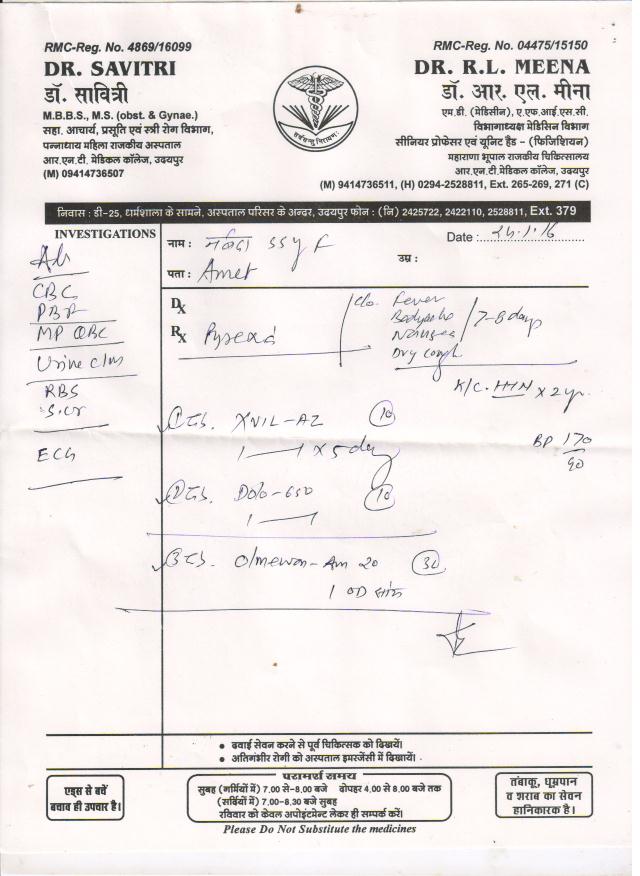 RMC-Reg. No. 4869/16099
DR. SAVITRI
डॉ. सावित्री
M.B.B.S., M.S. (obst. & Gynae.)
सहा. आचार्य, प्रसूति एवं स्त्री रोग विभाग,
पन्नाधाय महिला राजकीय अस्पताल
आर.एन.टी. मेडिकल कॉलेज, उदयपुर
(M) 09414736507
RMC-Reg. No. 04475/15150
DR. R.L. MEENA
डॉ. आर. एल. मीना
एम.डी. (मेडिसीन), ए.एफ.आई.एस.सी.
विभागाध्यक्ष मेडिसिन विभाग
सीनियर प्रोफेसर एवं यूनिट हैड - (फिजिशियन)
महाराणा भूपाल राजकीय चिकित्सालय
आर.एन.टी. मेडिकल कॉलेज, उदयपुर
(M) 9414736511, (H) 0294-2528811, Ext. 265-269, 271 (C)
निवास : डी-25, धर्मशाला के सामने, अस्पताल परिसर के अन्दर, उदयपुर फोन : (नि) 2425722, 2422110, 2528811, Ext. 379
INVESTIGATIONS
CBC
PBF
MP QBC
Urine c/m
RBS
S.cr
ECG
नाम : 55 y F
Date : 24.1.16
उम्र :
पता : Amet
Dx
Rx Pyrexia
C/o. Fever
Bodyache
Nausea
Dry cough
7-8 days
K/C. HTN x 2 yr.
BP 170
90
① Tab. XVIL-AZ 10
1 — 1 x 5 day
② Tab. Dolo-650 10
1 — 1
③ Tab. Olmewon-Am 20 30
1 OD
• दवाई सेवन करने से पूर्व चिकित्सक को दिखायें।
• अतिगंभीर रोगी को अस्पताल इमरजेंसी में दिखायें।
एड्स से बचें
बचाव ही उपचार है।
परामर्श समय
सुबह (गर्मियों में) 7.00 से-8.00 बजे दोपहर 4.00 से 8.00 बजे तक
(सर्दियों में) 7.00-8.30 बजे सुबह
रविवार को केवल अपोइंटमेन्ट लेकर ही सम्पर्क करें।
तंबाकू, धूम्रपान
व शराब का सेवन
हानिकारक है।
Please Do Not Substitute the medicines